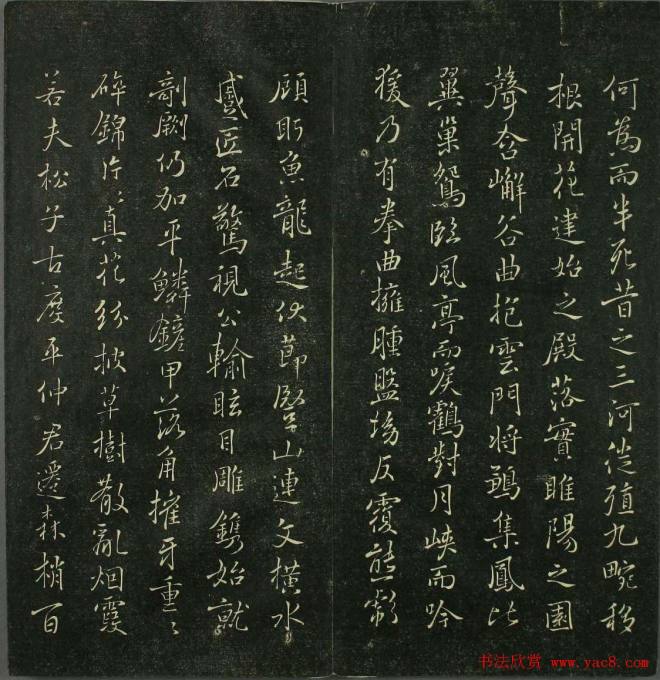 何為而半死昔之三河徙殖九畹移
根開花建始之殿落實睢陽之園
聲含嶰谷曲抱雲門將鶵集鳳比
翼巢鴛臨風亭而唳鶴對月峽而吟
猨乃有拳曲擁腫盤坳反覆熊彪
顧盼魚龍起伏節豎山連文橫水
蹙匠石驚視公輸眩目雕鐫始就
剞劂仍加平鱗鏟甲落角摧牙重〻
碎錦片〻真花紛披草樹散亂烟霞
若夫松子古度平仲君遷森梢百
书法欣赏 www.yac8.com